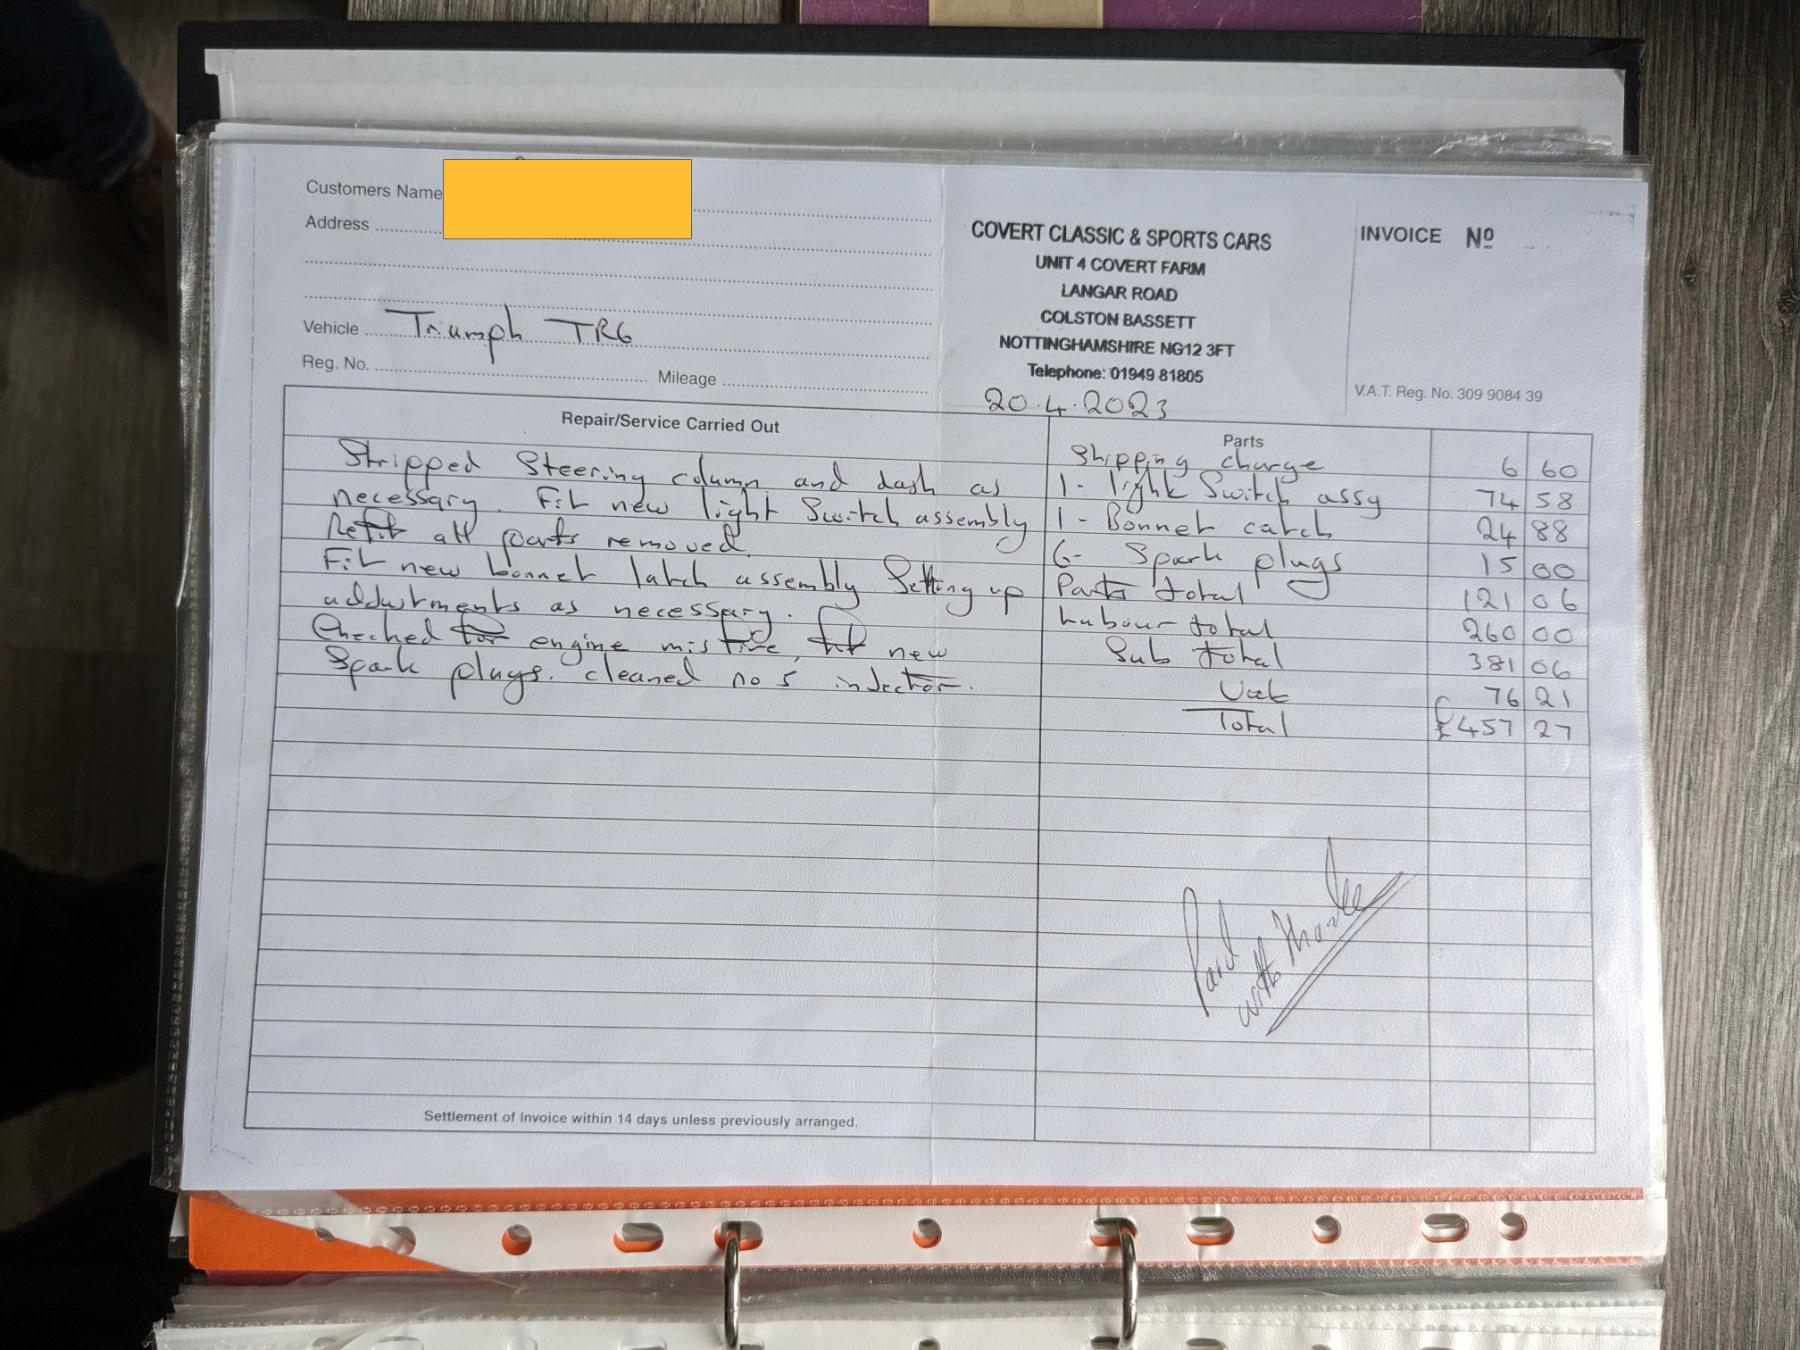 Customers Name
Address
Vehicle Triumph TR6
Reg. No. Mileage
COVERT CLASSIC & SPORTS CARS
UNIT 4 COVERT FARM
LANGAR ROAD
COLSTON BASSETT
NOTTINGHAMSHIRE NG12 3FT
Telephone: 01949 81805
20.4.2023
INVOICE Nº
V.A.T. Reg. No. 309 9084 39
Repair/Service Carried Out
Stripped Steering column and dash as
necessary. Fit new light Switch assembly
Refit all parts removed.
Fit new bonnet latch assembly Setting up
addustments as necessary.
Checked for engine misfire, fit new
Spark plugs. cleaned no 5 indector.
Parts
Shipping charge 6 60
1 - light Switch assy 74 58
1 - Bonnet catch 24 88
6 - Spark plugs 15 00
Parts total 121 06
Labour total 260 00
Sub total 381 06
Vat 76 21
Total £457 27
Paid
with thanks
Settlement of Invoice within 14 days unless previously arranged.